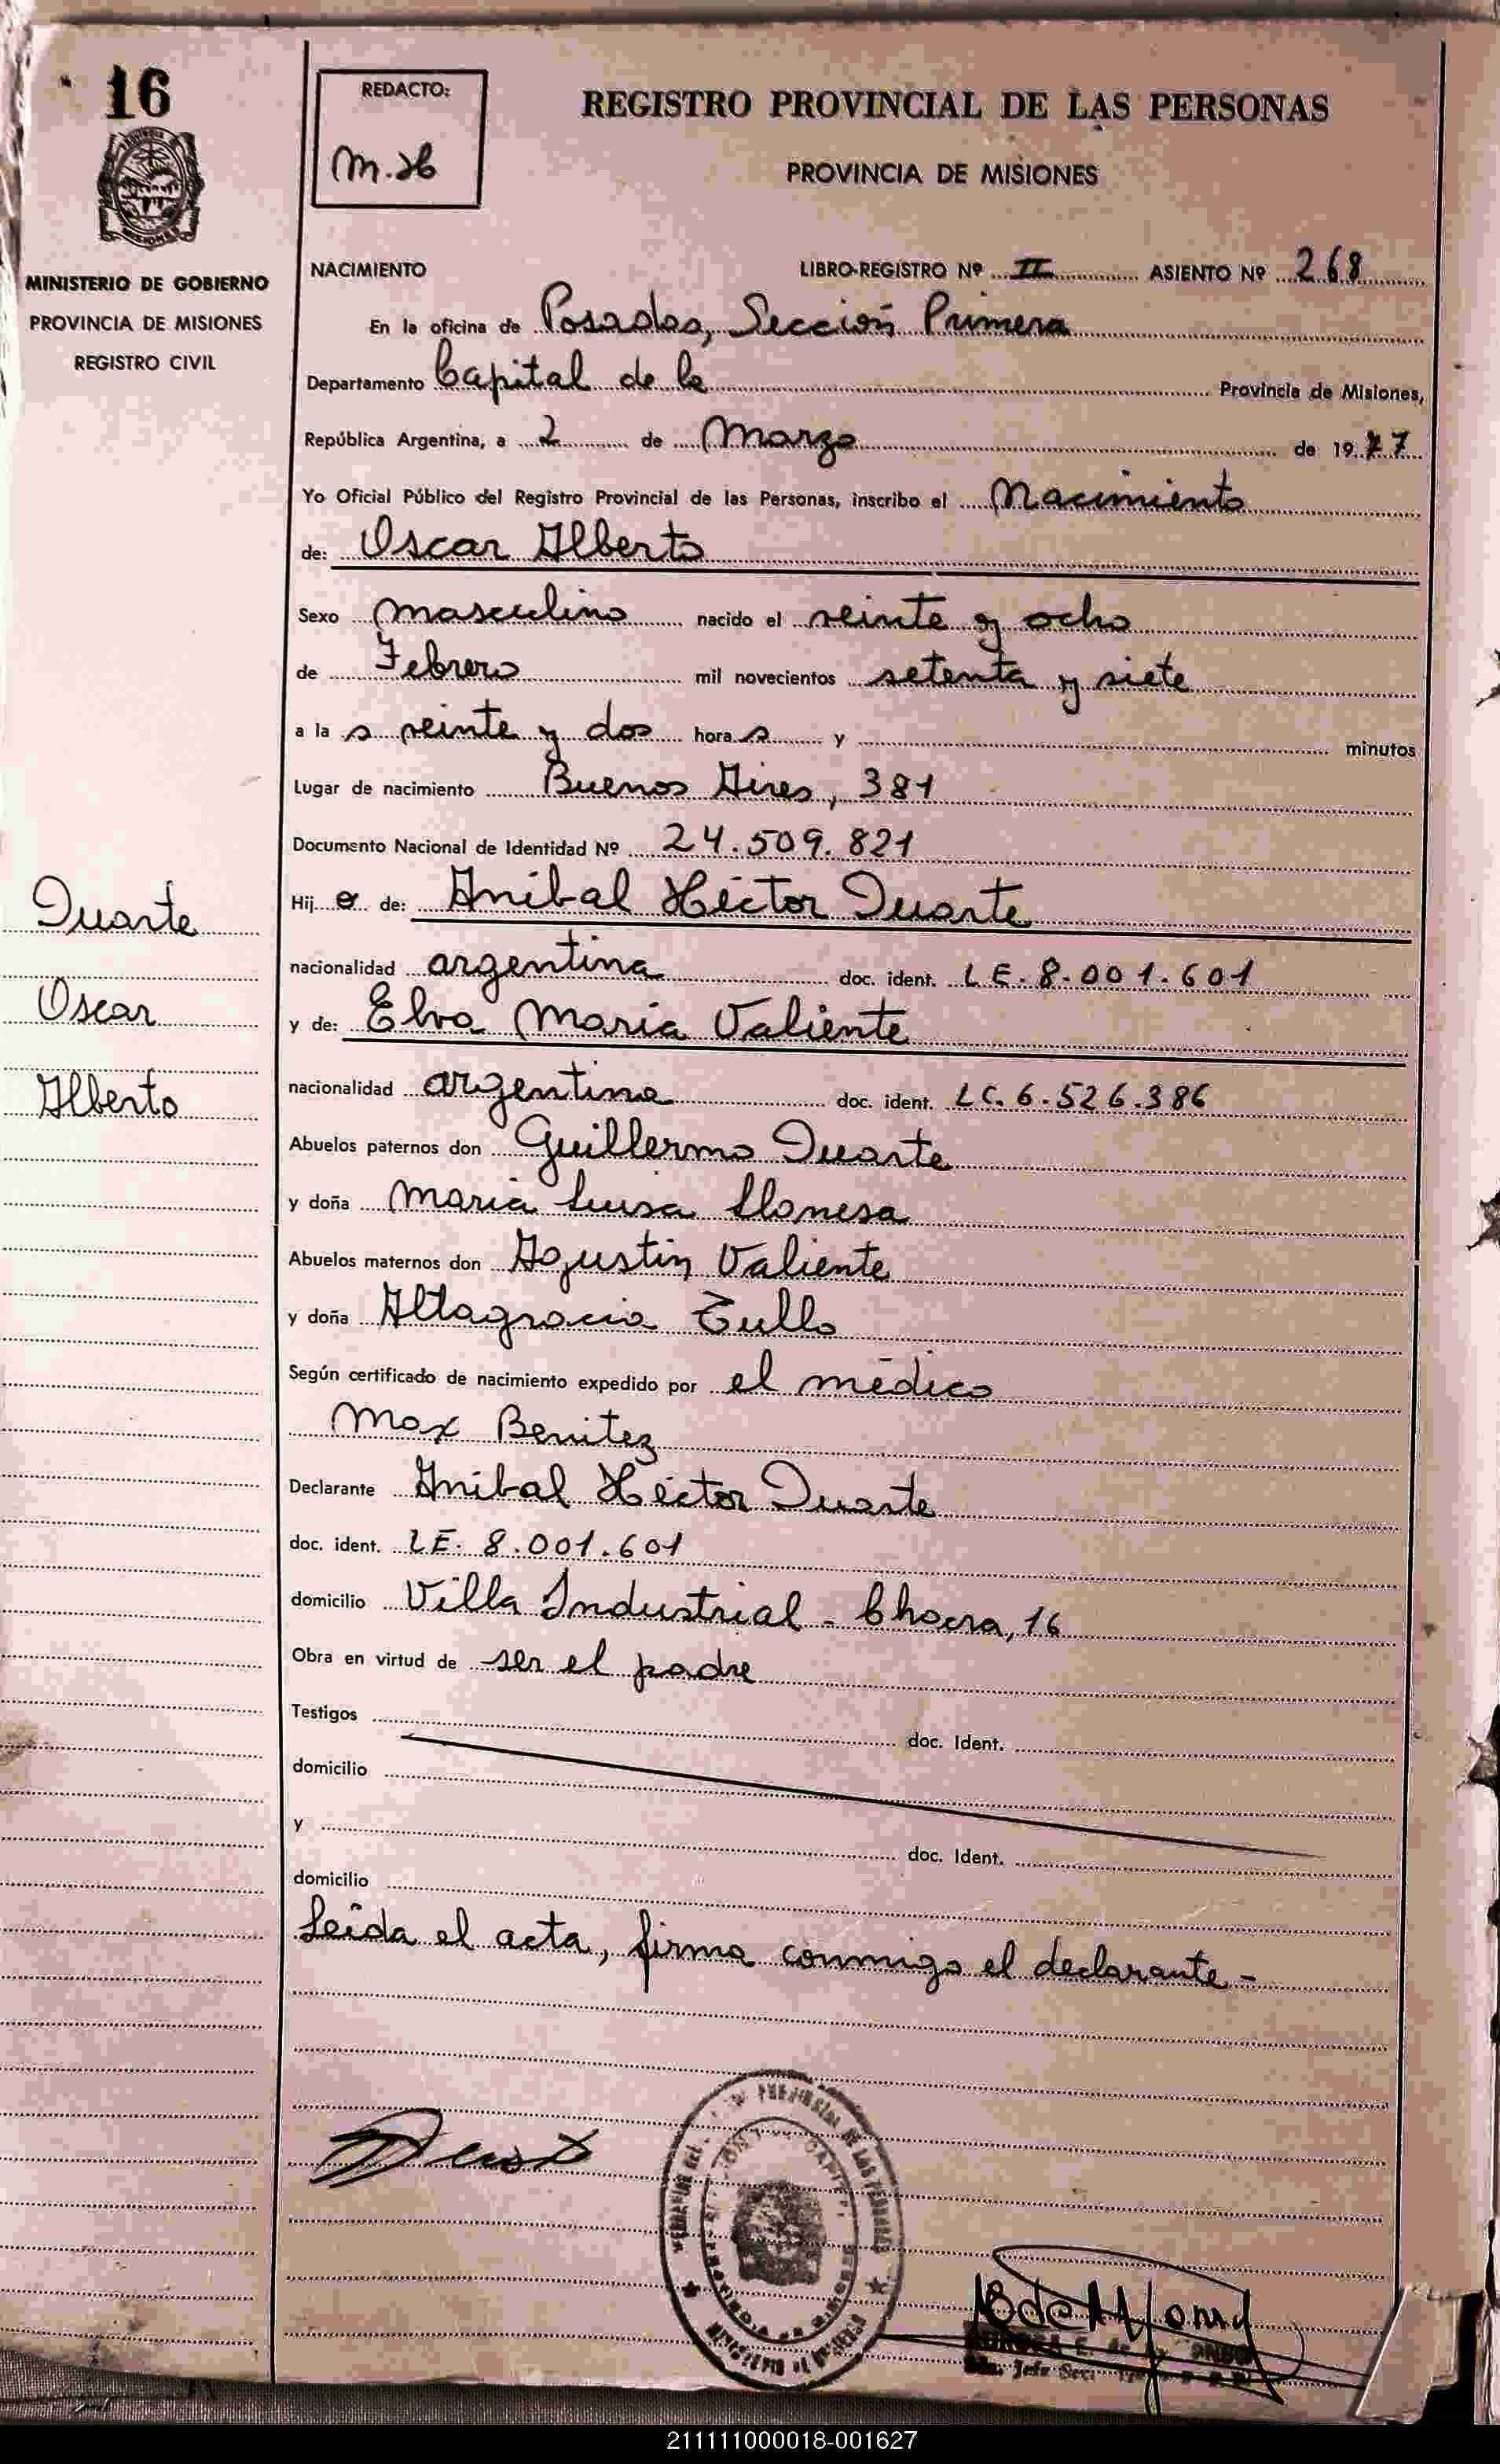 16
REDACTO:
REGISTRO PROVINCIAL DE LAS PERSONAS
PROVINCIA DE MISIONES
MINISTERIO DE GOBIERNO
PROVINCIA DE MISIONES
REGISTRO CIVIL
NACIMIENTO LIBRO-REGISTRO Nº II ASIENTO Nº 268
En la oficina de Posadas, Sección Primera
Departamento Capital de la Provincia de Misiones,
República Argentina, a 2 de Marzo de 1977
Yo Oficial Público del Registro Provincial de las Personas, inscribo el Nacimiento
de: Oscar Alberto
Sexo masculino nacido el veinte y ocho
de Febrero mil novecientos setenta y siete
a las veinte y dos horas y minutos
Lugar de nacimiento Buenos Aires, 381
Documento Nacional de Identidad Nº 24.509.821
Hijo de: Anibal Héctor Duarte
nacionalidad argentina doc. ident. L E. 8.001.601
y de: Elva Maria Valiente
nacionalidad argentina doc. ident. LC. 6.526.386
Duarte
Oscar
Alberto
Abuelos paternos don Guillermo Duarte
y doña Maria Luisa Llanesa
Abuelos maternos don Agustin Valiente
y doña Altagracia Tullo
Según certificado de nacimiento expedido por el médico
Max Benitez
Declarante Anibal Héctor Duarte
doc. ident. LE. 8.001.601
domicilio Villa Industrial - Chacra, 16
Obra en virtud de ser el padre
Testigos doc. Ident.
domicilio
y doc. Ident.
domicilio
Leida el acta, firma conmigo el declarante -
211111000018-001627